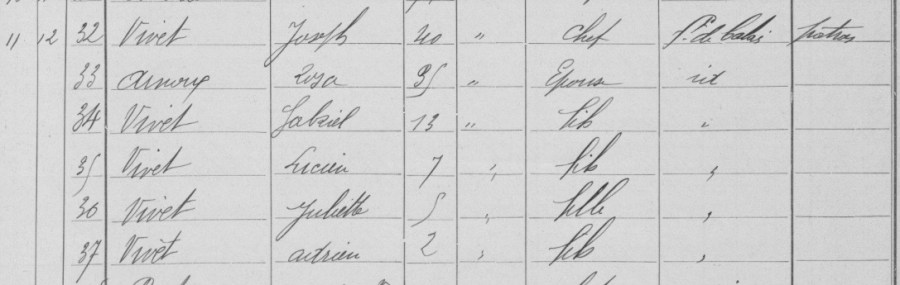 11 12 32 Vivet Joseph 40 " chef P. de Calais patron
33 Arnoux Rosa 35 " Epouse id
34 Vivet Gabriel 13 " fils "
35 Vivet Lucien 7 " fils "
36 Vivet Juliette 5 " fille "
37 Vivet Adrien 2 " fils "